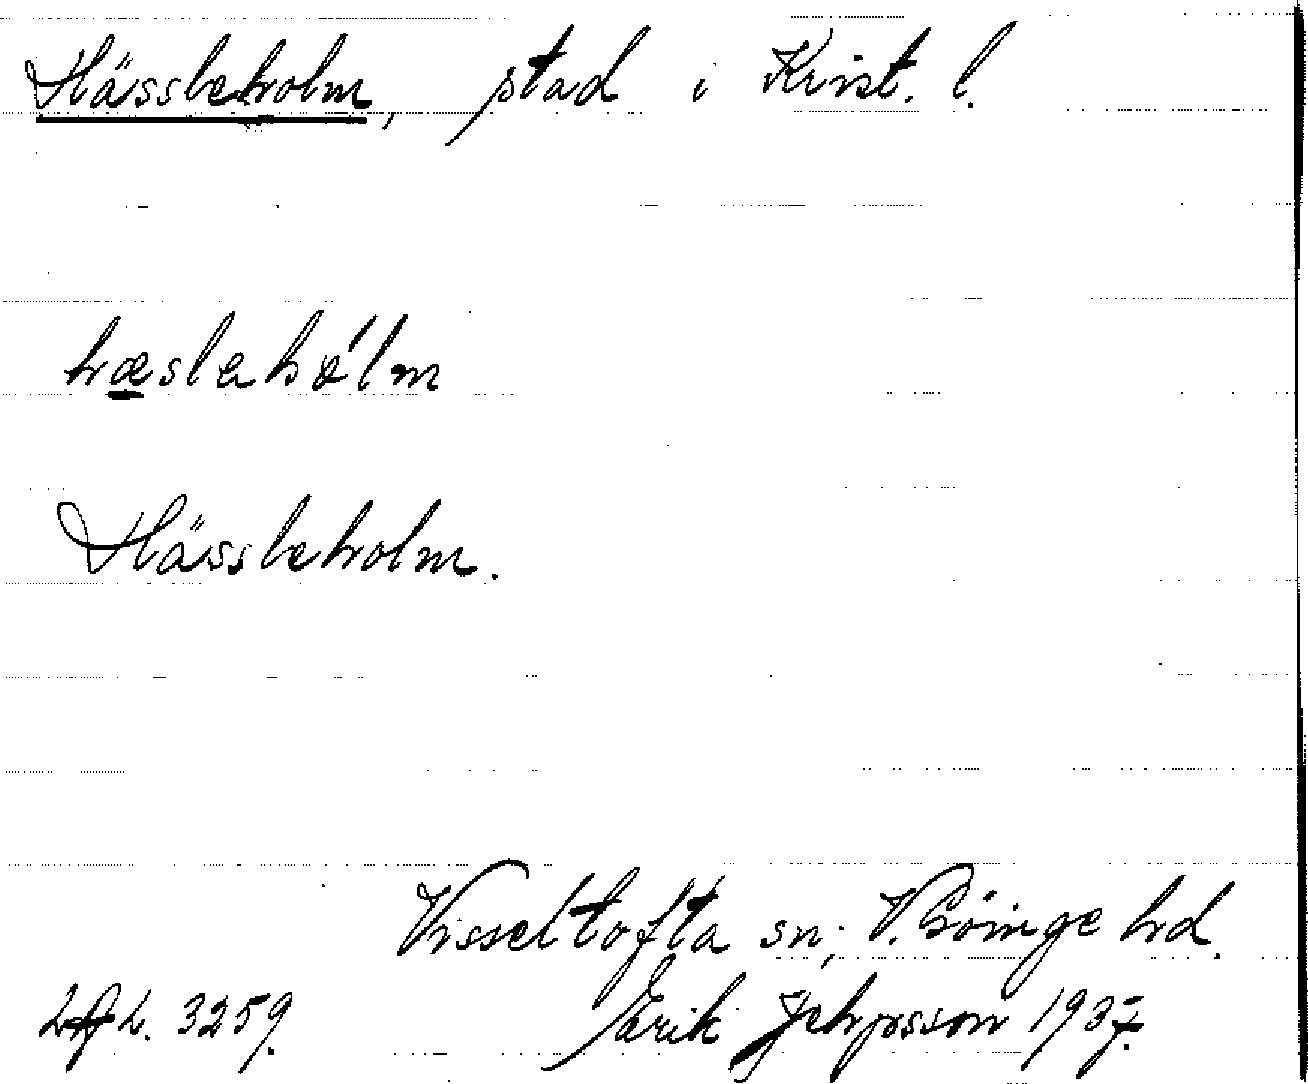 Hässleholm, stad i Krist. l.
hæslehólm
Hässleholm.
Visseltofta sn; V. Göinge hd.
3259. Erik Jeppsson 1937.